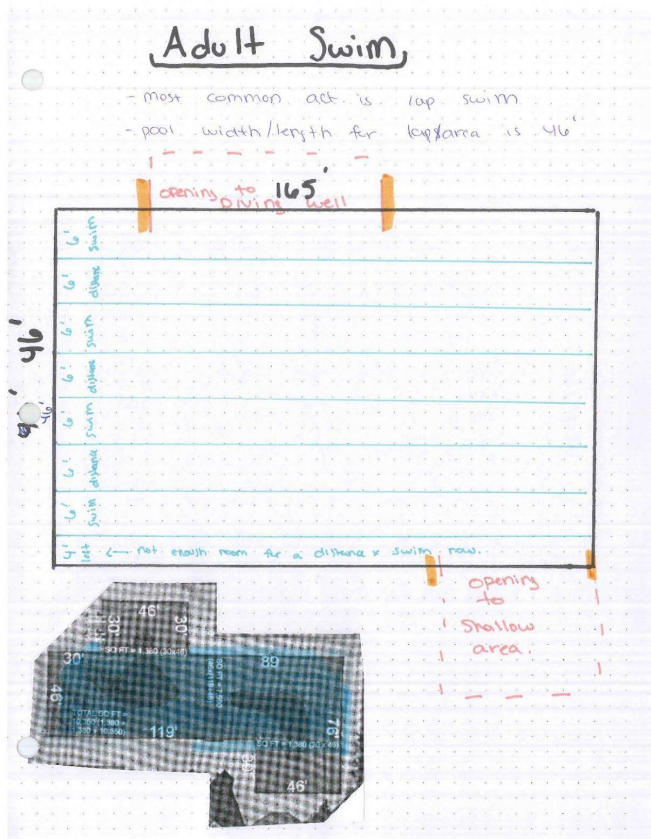 Adult Swim
- most common act. is lap swim
- pool width/length for laps/area is 46'
165'
opening to
Diving well
6' swim
6' distance
6' swim
6' distance
6' swim
6' distance
6' swim
4' left <— not enough room for a distance & swim row.
46'
46'
opening
to
Shallow
area.
46'
30'
30'
SQ FT = 1,380 (30x46)
30'
89'
46'
TOTAL SQ FT =
10,350 (1,380 +
119'
76'
SQ FT = 1,380 (30 x 46)
46'